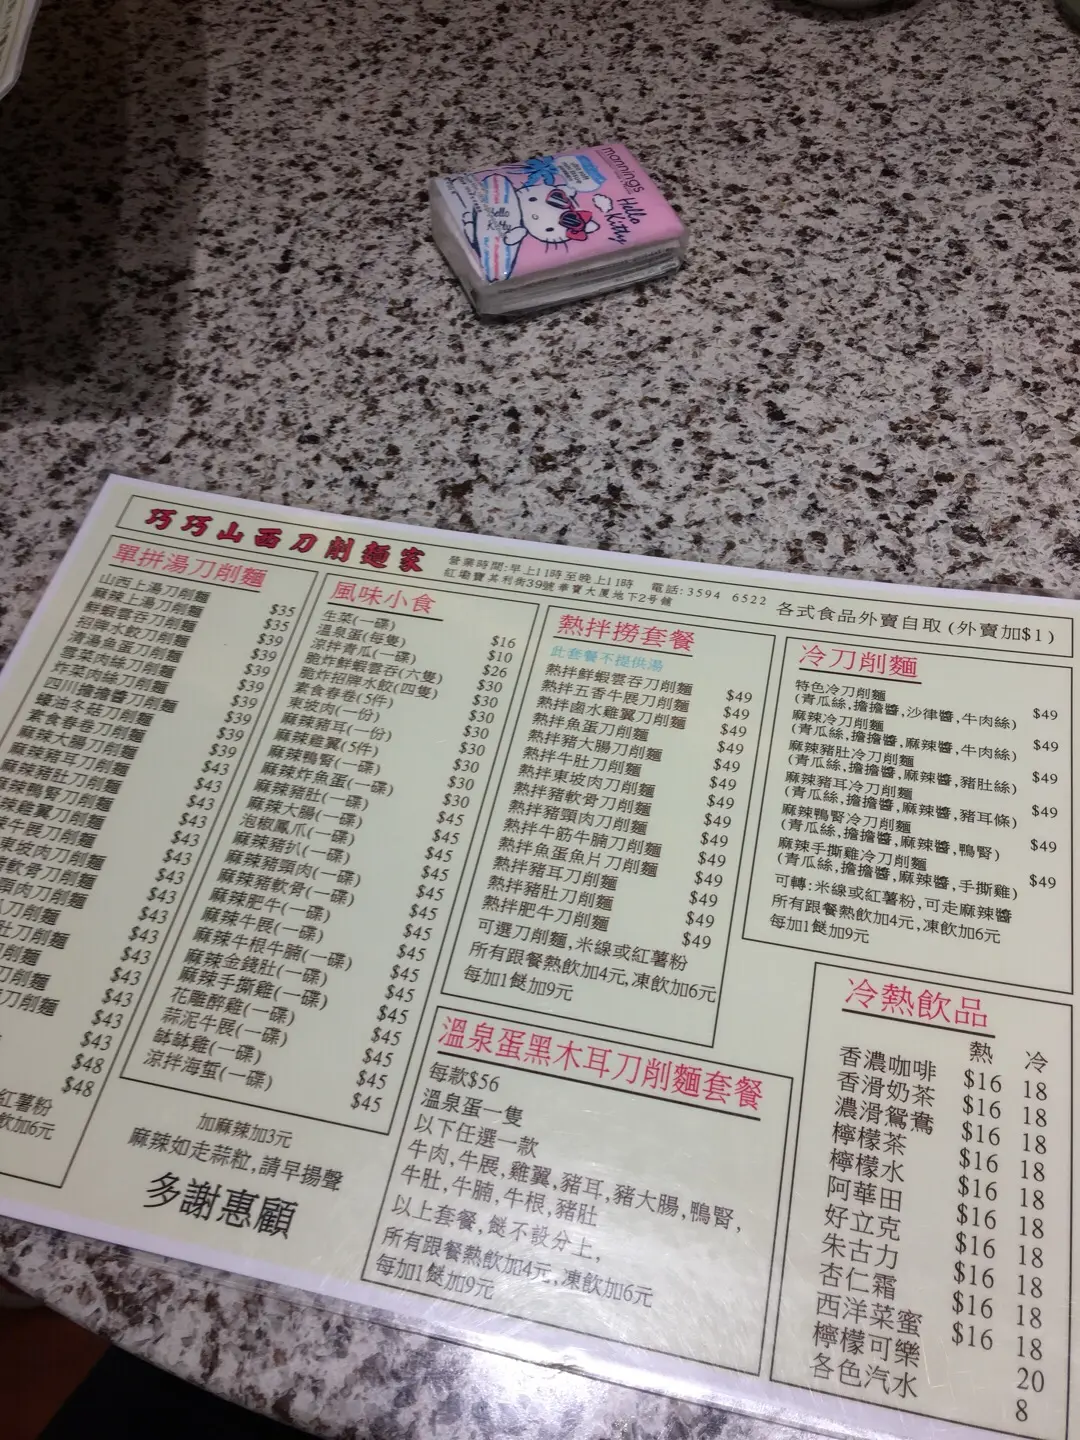 mannings
Hello
Kitty
Hello
Kitty
巧巧山西刀削麵家
營業時間:早上11時至晚上11時 電話:3594 6522
紅磡寶其利街39號華寶大厦地下2号舖
各式食品外賣自取(外賣加$1)
單拼湯刀削麵
山西上湯刀削麵 $35
麻辣上湯刀削麵 $35
鮮蝦雲吞刀削麵 $39
招牌水餃刀削麵 $39
清湯魚蛋刀削麵 $39
雪菜肉絲刀削麵 $39
炸菜肉絲刀削麵 $39
四川擔擔醬刀削麵 $39
蠔油冬菇刀削麵 $39
素食春卷刀削麵 $39
麻辣大腸刀削麵 $43
麻辣豬耳刀削麵 $43
麻辣豬肚刀削麵 $43
麻辣鴨腎刀削麵 $43
辣雞翼刀削麵 $43
牛展刀削麵 $43
東坡肉刀削麵 $43
軟骨刀削麵 $43
頭肉刀削麵 $43
刀削麵 $43
肚刀削麵 $43
削麵 $43
刀削麵 $43
刀削麵 $48
$48
紅薯粉
飲加6元
風味小食
生菜(一碟) $16
溫泉蛋(每隻) $10
涼拌青瓜(一碟) $26
脆炸鮮蝦雲吞(六隻) $30
脆炸招牌水餃(四隻) $30
素食春卷(5件) $30
東坡肉(一份) $30
麻辣豬耳(一份) $30
麻辣雞翼(5件) $30
麻辣鴨腎(一碟) $30
麻辣炸魚蛋(一碟) $45
麻辣豬肚(一碟) $45
麻辣大腸(一碟) $45
泡椒鳳爪(一碟) $45
麻辣豬扒(一碟) $45
麻辣豬頭肉(一碟) $45
麻辣豬軟骨(一碟) $45
麻辣肥牛(一碟) $45
麻辣牛展(一碟) $45
麻辣牛根牛腩(一碟) $45
麻辣金錢肚(一碟) $45
麻辣手撕雞(一碟) $45
花雕醉雞(一碟) $45
蒜泥牛展(一碟) $45
缽缽雞(一碟) $45
涼拌海蜇(一碟) $45
加麻辣加3元
麻辣如走蒜粒,請早揚聲
多謝惠顧
熱拌撈套餐
此套餐不提供湯
熱拌鮮蝦雲吞刀削麵 $49
熱拌五香牛展刀削麵 $49
熱拌鹵水雞翼刀削麵 $49
熱拌魚蛋刀削麵 $49
熱拌豬大腸刀削麵 $49
熱拌牛肚刀削麵 $49
熱拌東坡肉刀削麵 $49
熱拌豬軟骨刀削麵 $49
熱拌豬頭肉刀削麵 $49
熱拌牛筋牛腩刀削麵 $49
熱拌魚蛋魚片刀削麵 $49
熱拌豬耳刀削麵 $49
熱拌豬肚刀削麵 $49
熱拌肥牛刀削麵 $49
可選刀削麵,米線或紅薯粉
所有跟餐熱飲加4元,凍飲加6元
每加1餸加9元
溫泉蛋黑木耳刀削麵套餐
每款$56
溫泉蛋一隻
以下任選一款
牛肉,牛展,雞翼,豬耳,豬大腸,鴨腎,
牛肚,牛腩,牛根,豬肚
以上套餐,餸不設分上,
所有跟餐熱飲加4元,凍飲加6元
每加1餸加9元
冷刀削麵
特色冷刀削麵
(青瓜絲,擔擔醬,沙律醬,牛肉絲) $49
麻辣冷刀削麵
(青瓜絲,擔擔醬,麻辣醬,牛肉絲) $49
麻辣豬肚冷刀削麵
(青瓜絲,擔擔醬,麻辣醬,豬肚絲) $49
麻辣豬耳冷刀削麵
(青瓜絲,擔擔醬,麻辣醬,豬耳條) $49
麻辣鴨腎冷刀削麵
(青瓜絲,擔擔醬,麻辣醬,鴨腎) $49
麻辣手撕雞冷刀削麵
(青瓜絲,擔擔醬,麻辣醬,手撕雞) $49
可轉:米線或紅薯粉,可走麻辣醬
所有跟餐熱飲加4元,凍飲加6元
每加1餸加9元
冷熱飲品
熱 冷
香濃咖啡 $16 18
香滑奶茶 $16 18
濃滑鴛鴦 $16 18
檸檬茶 $16 18
檸檬水 $16 18
阿華田 $16 18
好立克 $16 18
朱古力 $16 18
杏仁霜 $16 18
西洋菜蜜 $16 18
檸檬可樂 20
各色汽水 8